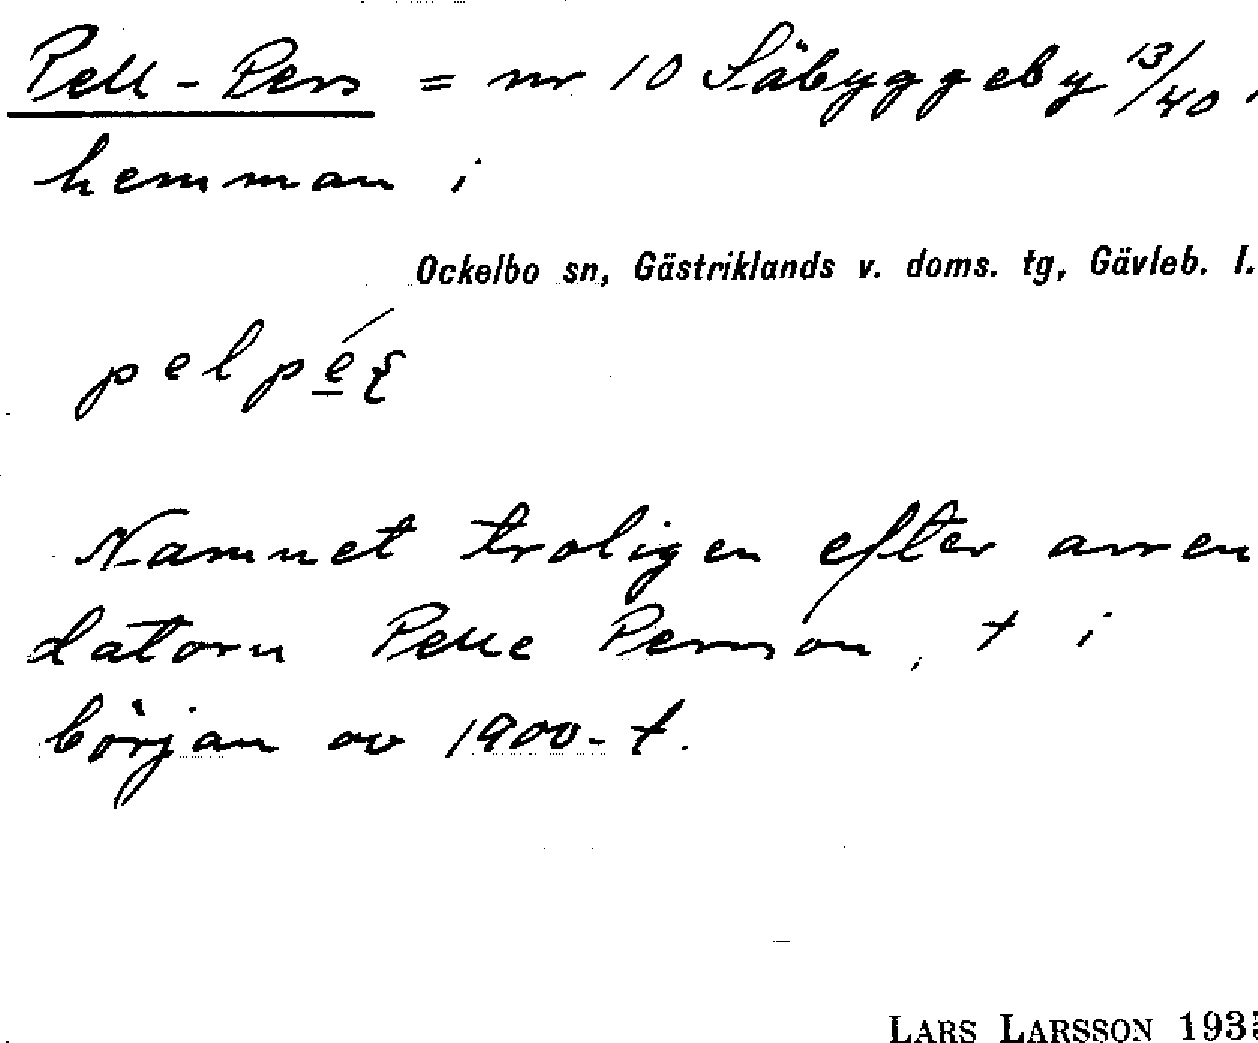 Pell-Pers = nr 10 Säbyggeby 13/40.
hemman i
Ockelbo sn, Gästriklands v. doms. tg, Gävleb. l.
Namnet troligen efter arren
datorn Pelle Persson, † i
början av 1900-t.
LARS LARSSON 193